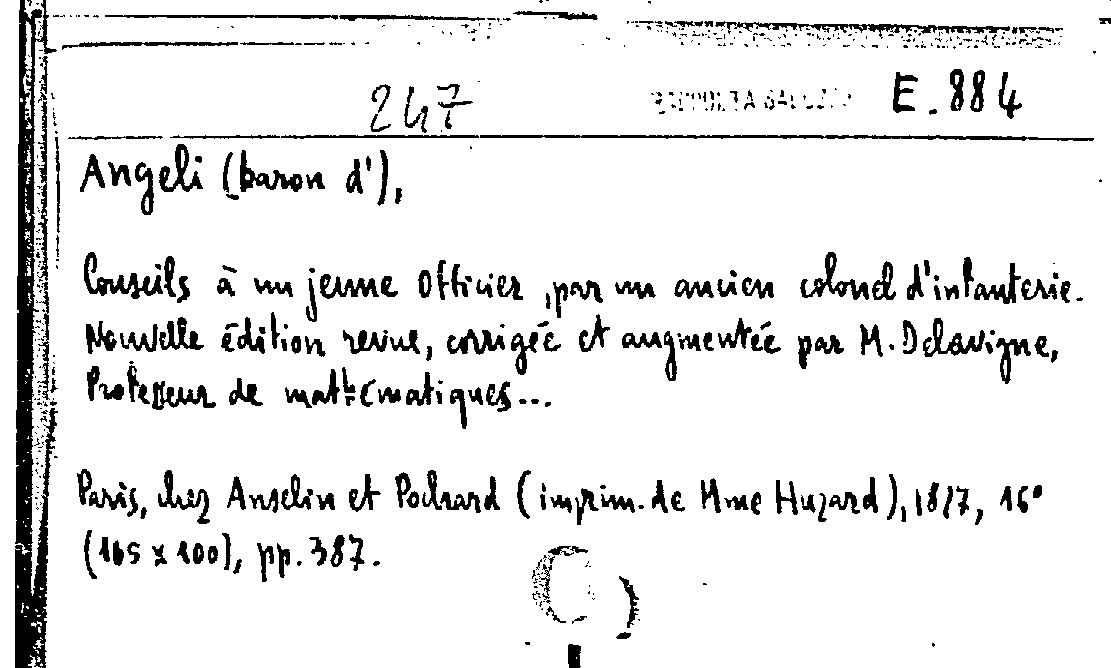 247 RACCOLTA E.884
Angeli (baron d'),
Conseils à un jeune Officier, par un ancien colonel d'infanterie.
Nouvelle édition revue, corrigée et augmentée par M. Delavigne,
Professeur de mathématiques...
Paris, chez Anselin et Pochard (imprim. de Mme Huzard), 1827, 16°
(165 x 100), pp. 387.